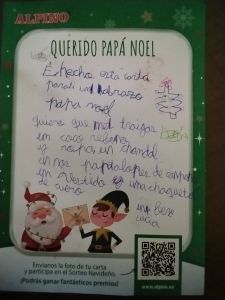 ALPINO
QUERIDO PAPÁ NOEL
E hecho esta carta
para un abrazo
papa noel
quiero que me traigas
un coco
y ropa, un chandal
unos pantalones de
un vestido y una chaqueta
de cuero
un beso
Lucia
Envíanos la foto de tu carta
y participa en el Sorteo Navideño.
¡Podrás ganar fantásticos premios!
www.alpino.es